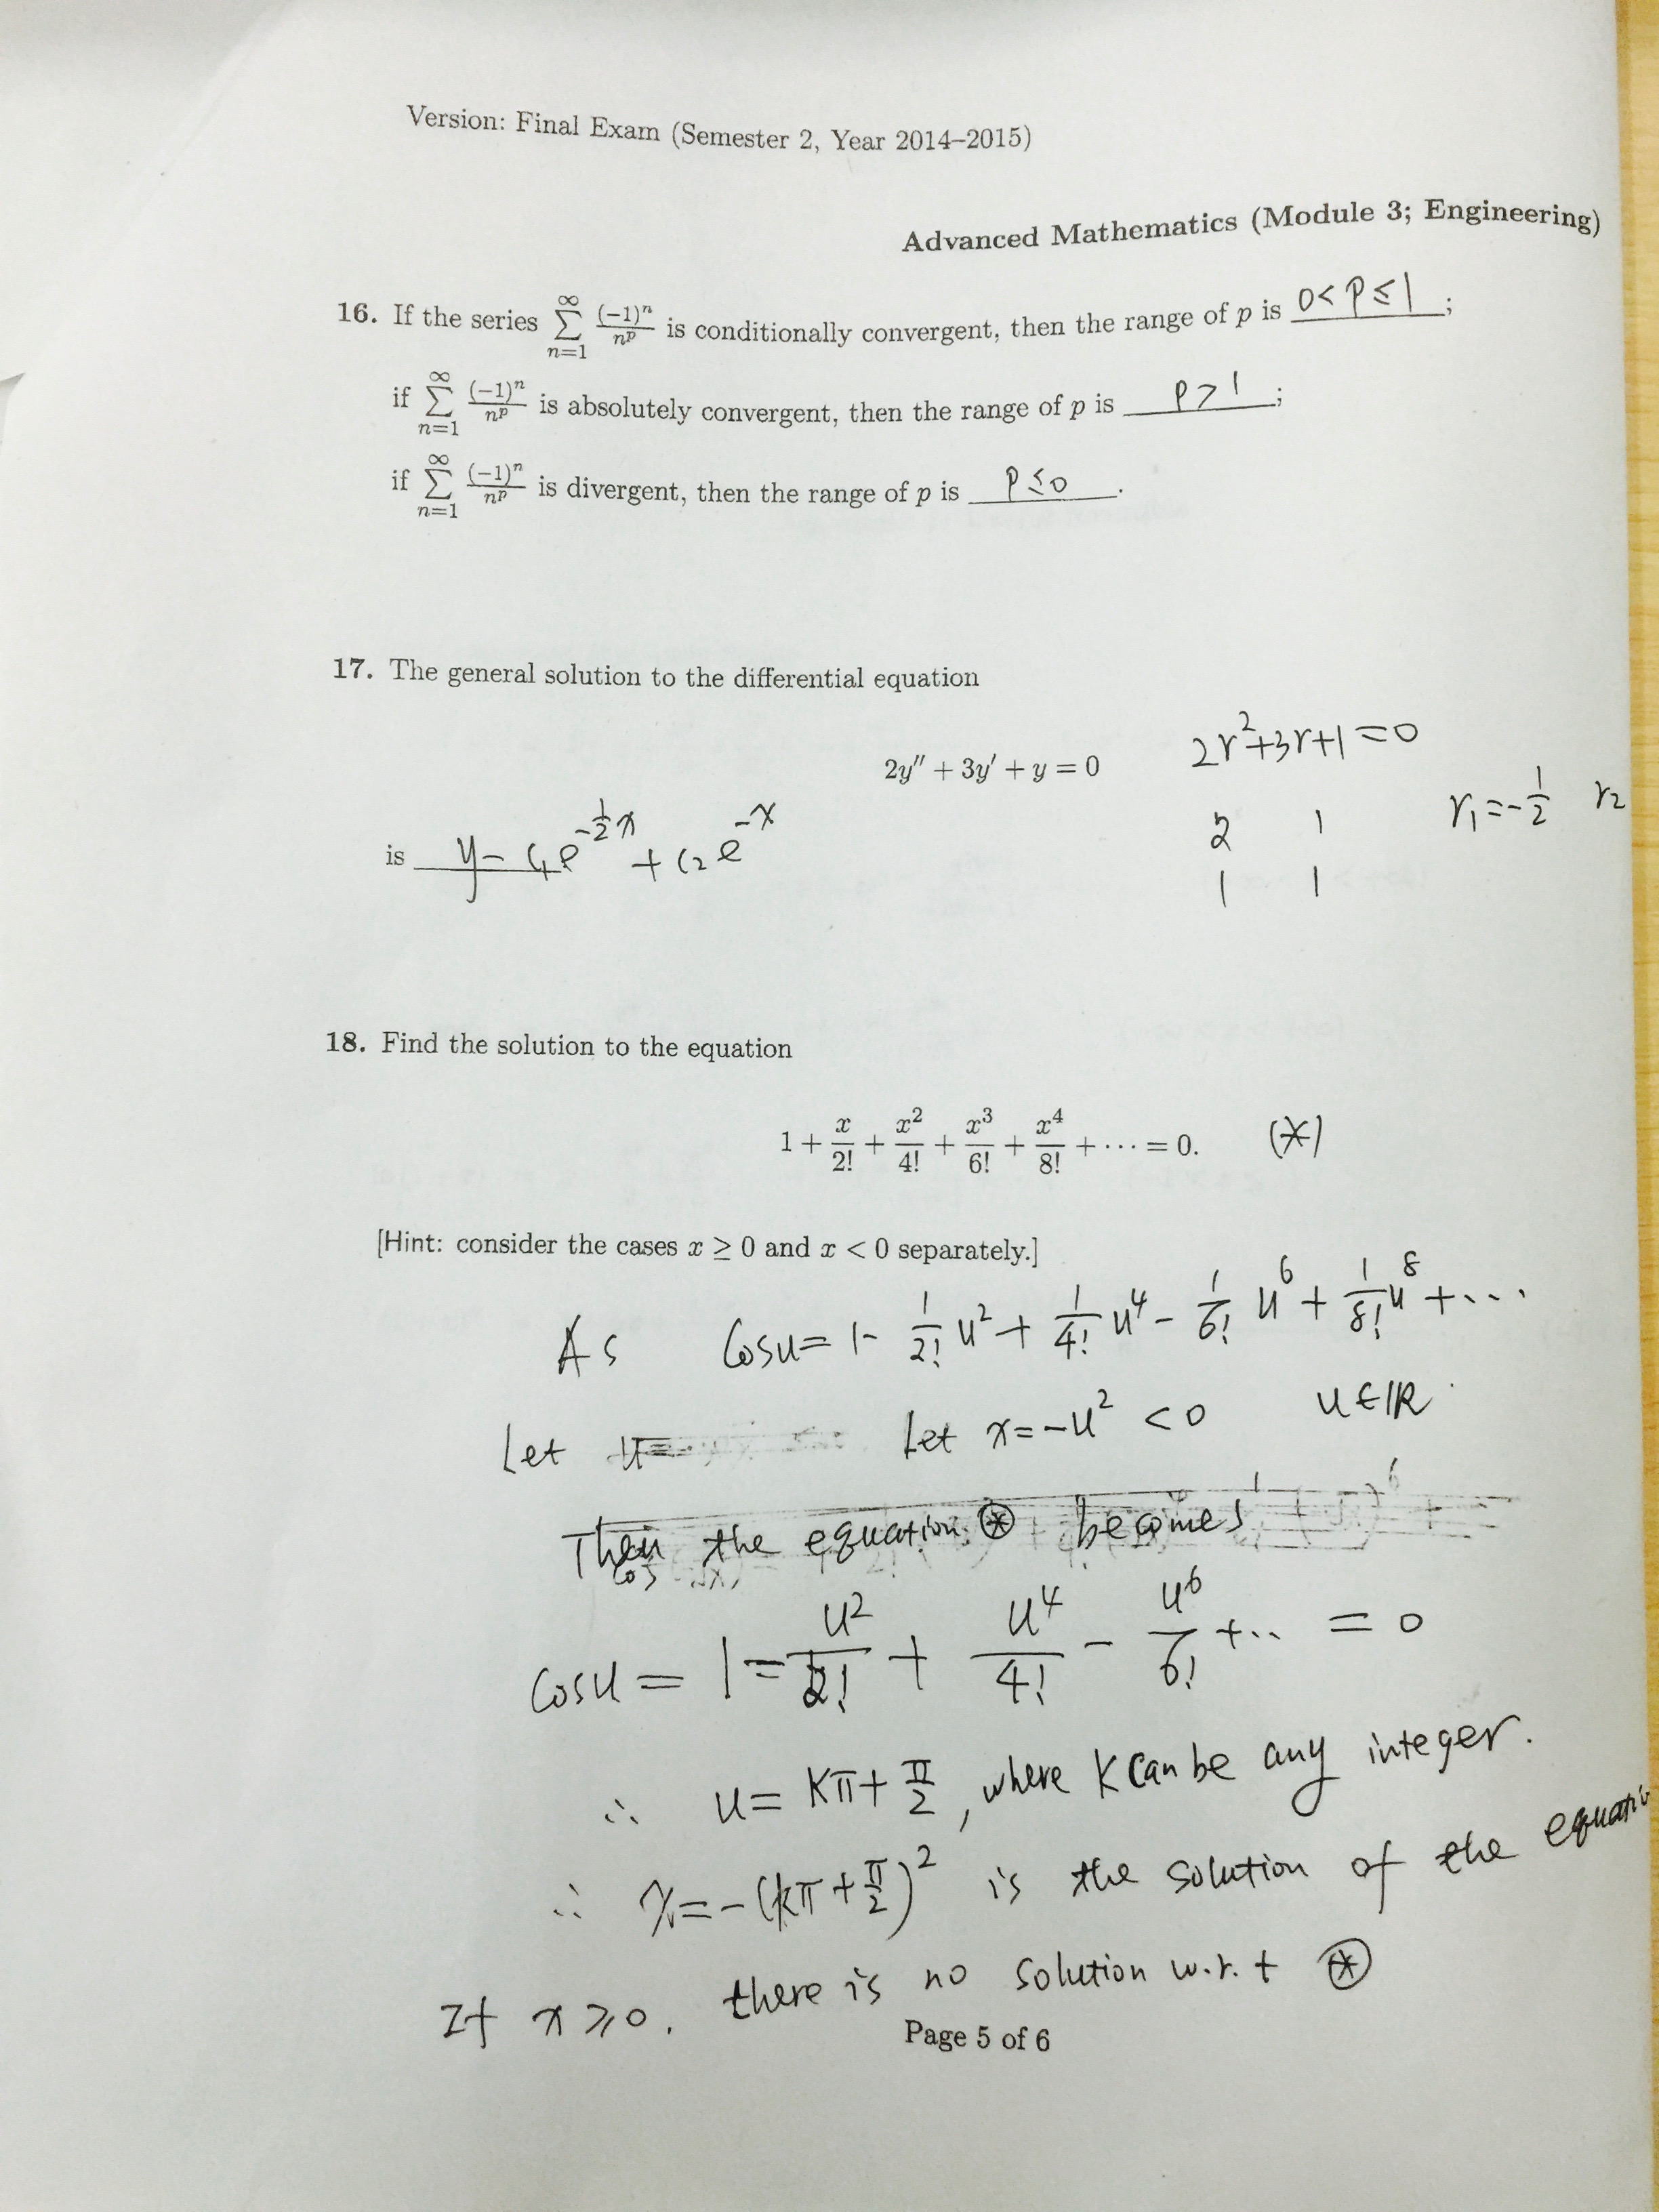 Version: Final Exam (Semester 2, Year 2014–2015)
Advanced Mathematics (Module 3; Engineering)
16. If the series ∑_{n=1}^{∞} (-1)^n/n^p is conditionally convergent, then the range of p is 0 < P ≤ 1;
if ∑_{n=1}^{∞} (-1)^n/n^p is absolutely convergent, then the range of p is P > 1;
if ∑_{n=1}^{∞} (-1)^n/n^p is divergent, then the range of p is P ≤ 0.
17. The general solution to the differential equation
2y″ + 3y′ + y = 0 2r²+3r+1=0
2 1 r₁=-1/2 r₂
1 1
is y = C₁e^{-1/2 x} + C₂e^{-x}
18. Find the solution to the equation
1 + x/2! + x²/4! + x³/6! + x⁴/8! + ⋯ = 0. (*)
[Hint: consider the cases x ≥ 0 and x < 0 separately.]
As Cosu = 1 - 1/2! u² + 1/4! u⁴ - 1/6! u⁶ + 1/8! u⁸ + ...
Let Let x = -u² < 0 u∈ℝ.
Then the equation ⊛ becomes
Cosu = 1 - u²/2! + u⁴/4! - u⁶/6! + ... = 0
∴ u = Kπ + π/2, where K can be any integer.
∴ x = -(kπ + π/2)² is the solution of the
If x ≥ 0, there is no solution w.r.t ⊛
Page 5 of 6